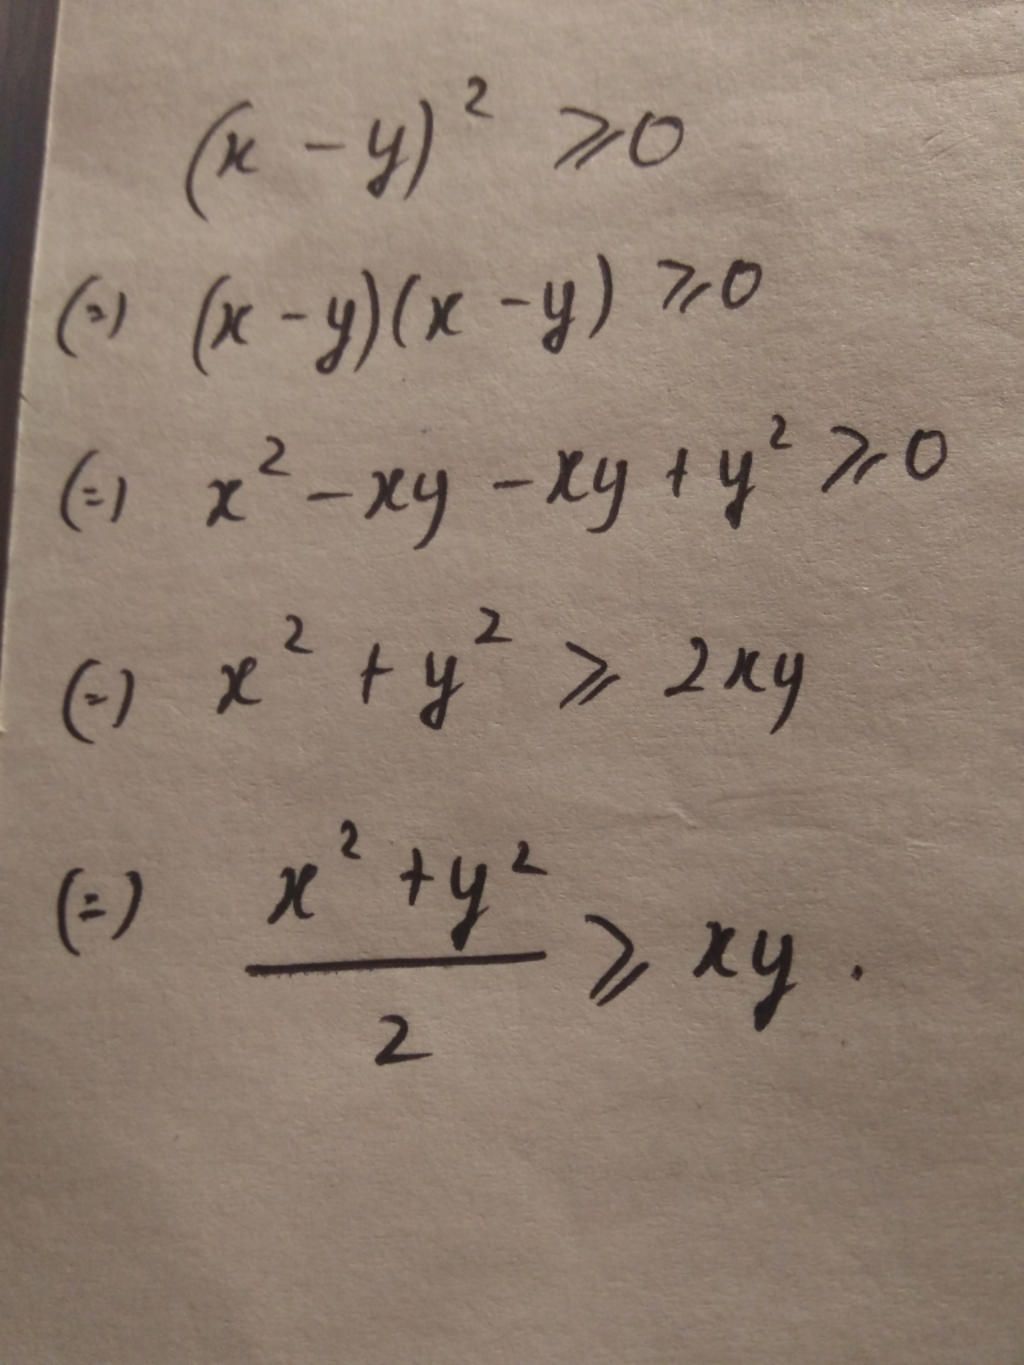 (x - y)² ⩾ 0
(=) (x - y)(x - y) ⩾ 0
(=) x² - xy - xy + y² ⩾ 0
(=) x² + y² ⩾ 2xy
(=) (x² + y²)/2 ⩾ xy.